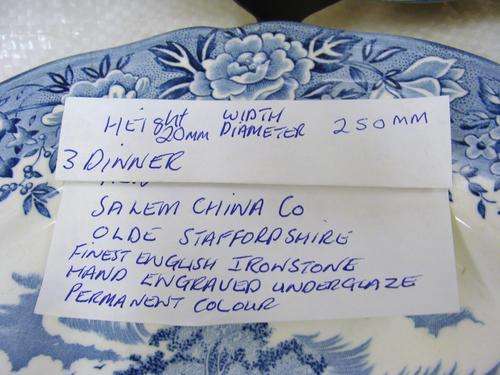 HEIGHT WIDTH
20MM DIAMETER 250MM
3 DINNER
SALEM CHINA CO
OLDE STAFFORDSHIRE
FINEST ENGLISH IRONSTONE
HAND ENGRAVED UNDERGLAZE
PERMANENT COLOUR